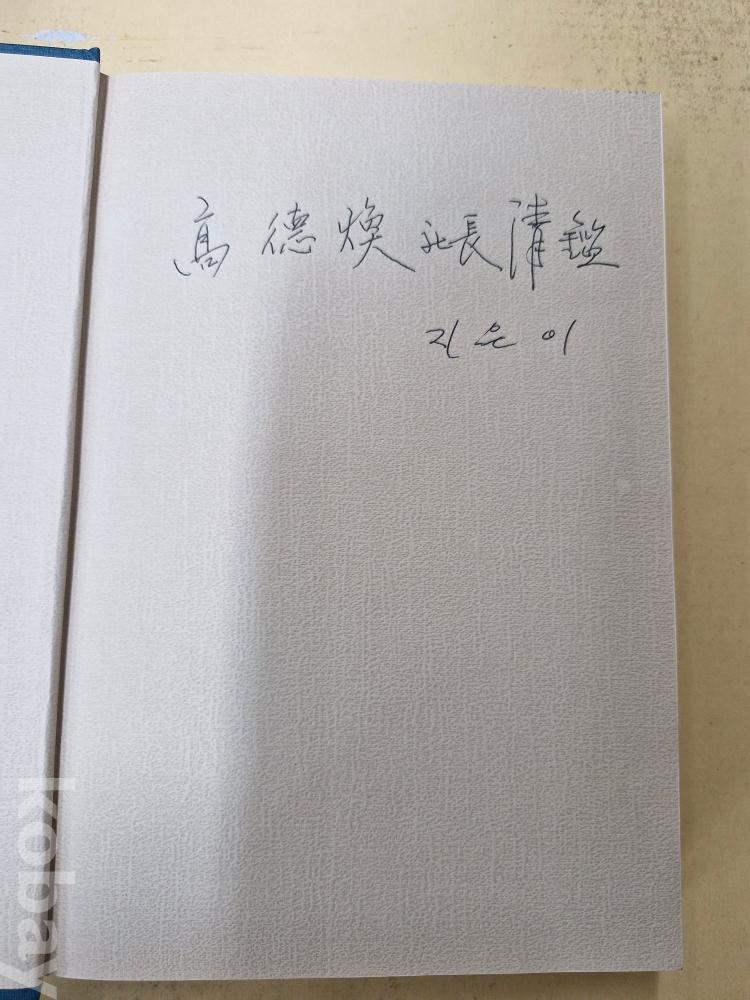 高德煥 社長 淸鑑
지은이
kobay